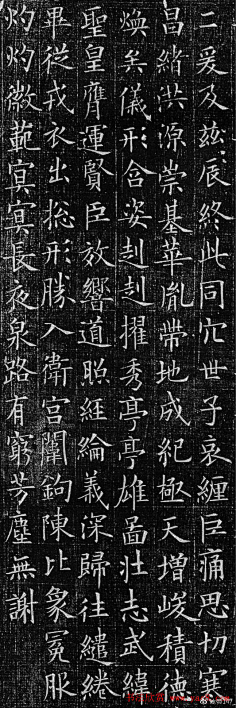 二爰及茲辰終此同穴世子哀纏巨痛思切寒
昌緒洪源崇基華胤帶地成紀極天增峻積德
煥矣儀形含姿赳赳擢秀亭亭雄啚壯志武緯
聖皇膺運賢臣放響道照經綸義深歸往繾綣
畢從戎衣出揔形勝入衛宮闈鉤陳比象冕服
灼灼徽範冥冥長夜泉路有窮芳塵無謝